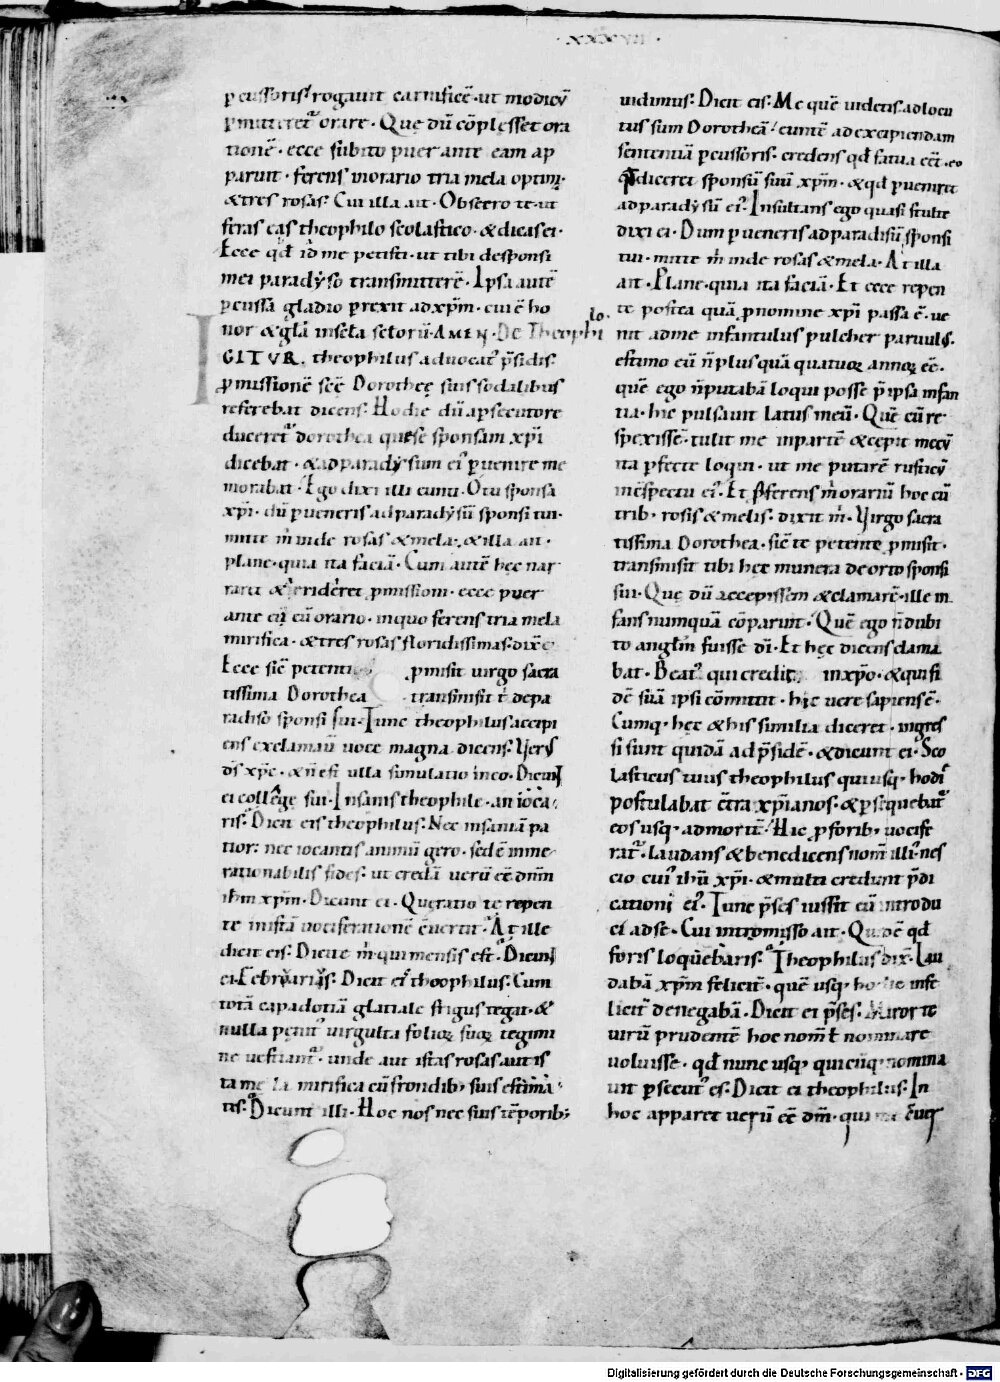 pcussoris. rogauit carnificē. ut modicū
pmitteret᷑ orare. Que dū cōplesset ora
tionē. ecce subito puer ante eam ap
paruit. ferens inorario tria mela optima.
& tres rosas. Cui illa ait. Obsecro te ut
feras eas theophilo scolastico. & dicas ei.
Ecce qđ id me petisti. ut tibi desponsi
mei paradyso transmitterē. Ipsa autē
pcussa gladio prexit ad xp̄m. cui ē ho
nor & gl̄a inscl̄a sclorū. AMEN. De Theophi
lo.
IGITVR. theophilus aduocat᷑ p̄sidis.
pmissionē scē Dorotheę suis sodalibus
referebat dicens. Hodie dū apsecutore
duceret᷑ dorothea que se sponsam xp̄i
dicebat. & ad paradysum ei᷒ puenire me
morabat. Ego dixi illi eunti. O tu sponsa
xp̄i. dū pueneris ad paradysū sponsi tui.
mitte m̄ inde rosas & mela. & illa ait.
plane. quia ita faciā. Cum autē hec nar
raret & irrideret pmissioni. ecce puer
ante eū cū orario. inquo ferens tria mela
mirifica. & tres rosas floridissimas. dix̄
Ecce sic̄ petenti pmisit uirgo sacra
tissima Dorothea transmisit t̄ depa
radiso sponsi sui. Tunc theophilus accipi
ens exclamauit uoce magna dicens. Uerus
d̄s xp̄c. & n̄ est ulla simulatio inco. Dicunt
ei collęge sui. Insanis theophile. an ioca
ris. Dicit eis theophilus. Nec insaniā pa
tior. nec iocantis animū gero. sed ē inme
rationabilis fides. ut credā uerū eē dn̄m
ih̄m xp̄m. Dicunt ei. Que ratio te repen
te inistā uociferationē euertit. At ille
dicit eis. Dicite m̄. qui mensis est. Dicunt
ei. Februarius. Dicit ei᷒ theophilus. Cum
totā capadotiā glatiale frigus tegat. &
nulla penit᷒ uirgulta folioꝝ suoꝝ tegimi
ne uestiant᷑. unde aut istas rosas aut is
ta mela mirifica cū frondib; suis estima
tis. Dicunt illi. Hoc nos nec suis tēporib;
uidimus. Dicit eis. Me quē uidetis. ad locu
tus sum Dorotheā. euntē ad excipiendam
sententiā pcussoris. credens qđ fatua eēt. eo
qđ diceret sponsū suū xp̄m. & qđ pueniret
ad paradysū ei᷒. Insultans ego quasi stulte
dixi ei. Dum pueneris ad paradisū sponsi
tui. mitte m̄ inde rosas & mela. At illa
ait. Plane. quia ita faciā. Et ecce repen
te postea quā pnomine xp̄i passa ē. ue
nit ad me infantulus pulcher paruulus.
estimo eū n̄ plus quā quatuoꝝ annoꝝ eē.
quē ego n̄ putabā loqui posse p̄ ipsa infan
tia. hic pulsauit latus meū. Quē cū re
spexissē. tulit me inpartē & cepit mecū
ita pfecte loqui. ut me putarē rusticū
inc̄spectu ei᷒. Et p̄ferens m̄ orariū hoc cū
trib; rosis & melis. dixit m̄. Virgo sacra
tissima Dorothea. sic̄ te petente pmisit.
transmisit tibi hec munera de orto sponsi
sui. Que dū accepissem & clamarē. ille in
fans numquā cōparuit. Quē ego n̄ dubi
to angl̄m fuisse di̅. Et hęc dicens clama
bat. Beat᷒ qui credit inxp̄o. & qui fi
dē suā ipsi cōmittit. hic uere sapiens ē.
Cumq; hęc & his similia diceret. ingres
si sunt quidā ad p̄sidē. & dicunt ei. Sco
lasticus tuus theophilus qui usq; hodie
postulabat c̄tra xp̄ianos. & p̄sequebat᷑
eos usq; ad mortē. Hic p forib; uocife
rat᷑. laudans & benedicens nom̄ illi᷒. nes
cio cui᷒ ih̄u xp̄i. & multi credunt p̄di
cationi ei᷒. Tunc p̄ses iussit eū introdu
ci ad se. Cui intromisso ait. Quid ē qđ
foris loquebaris. Theophilus dix̄. Lau
dabā xp̄m felicit̄. quē usq; hodie infe
licit̄ denegabā. Dicit ei p̄ses. Miror te
uirū prudentē hoc nom̄ nominare
uoluisse. qđ nunc usq; quicūq; nomina
uit psecut᷒ es. Dicit ei theophilus. In
hoc apparet uerū eē dm̄. qui me